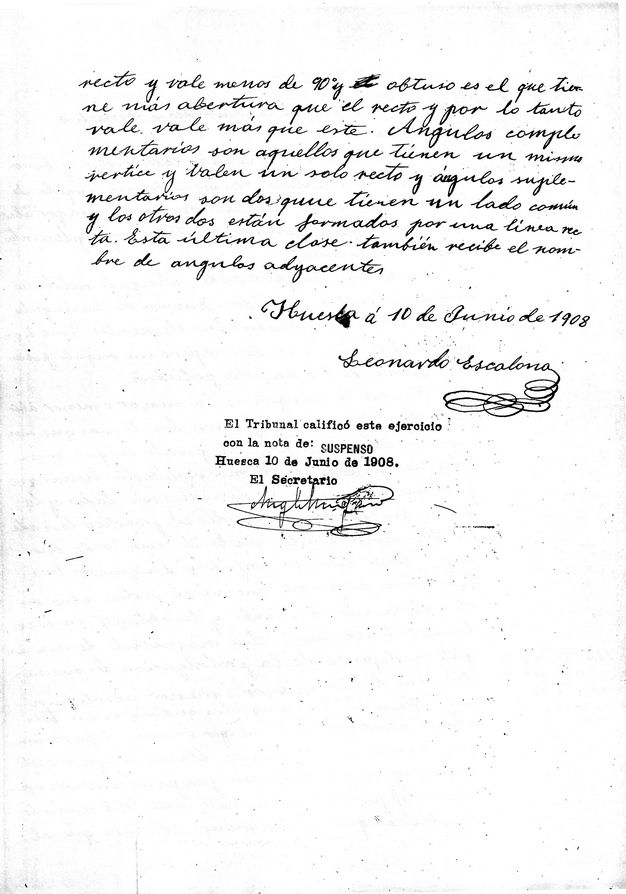 recto y vale menos de 90° y obtuso es el que tie-
ne más abertura que el recto y por lo tanto
vale vale más que este. Angulos comple
mentarios son aquellos que tienen un mismo
vertice y valen un solo recto y ángulos suple-
mentarios son dos que tienen un lado común
y los otros dos están formados por una línea rec
ta. Esta última clase también recibe el nom-
bre de angulos adyacentes
Huesca á 10 de Junio de 1908
Leonardo Escalona
El Tribunal calificó este ejercicio
con la nota de: SUSPENSO
Huesca 10 de Junio de 1908.
El Secretario